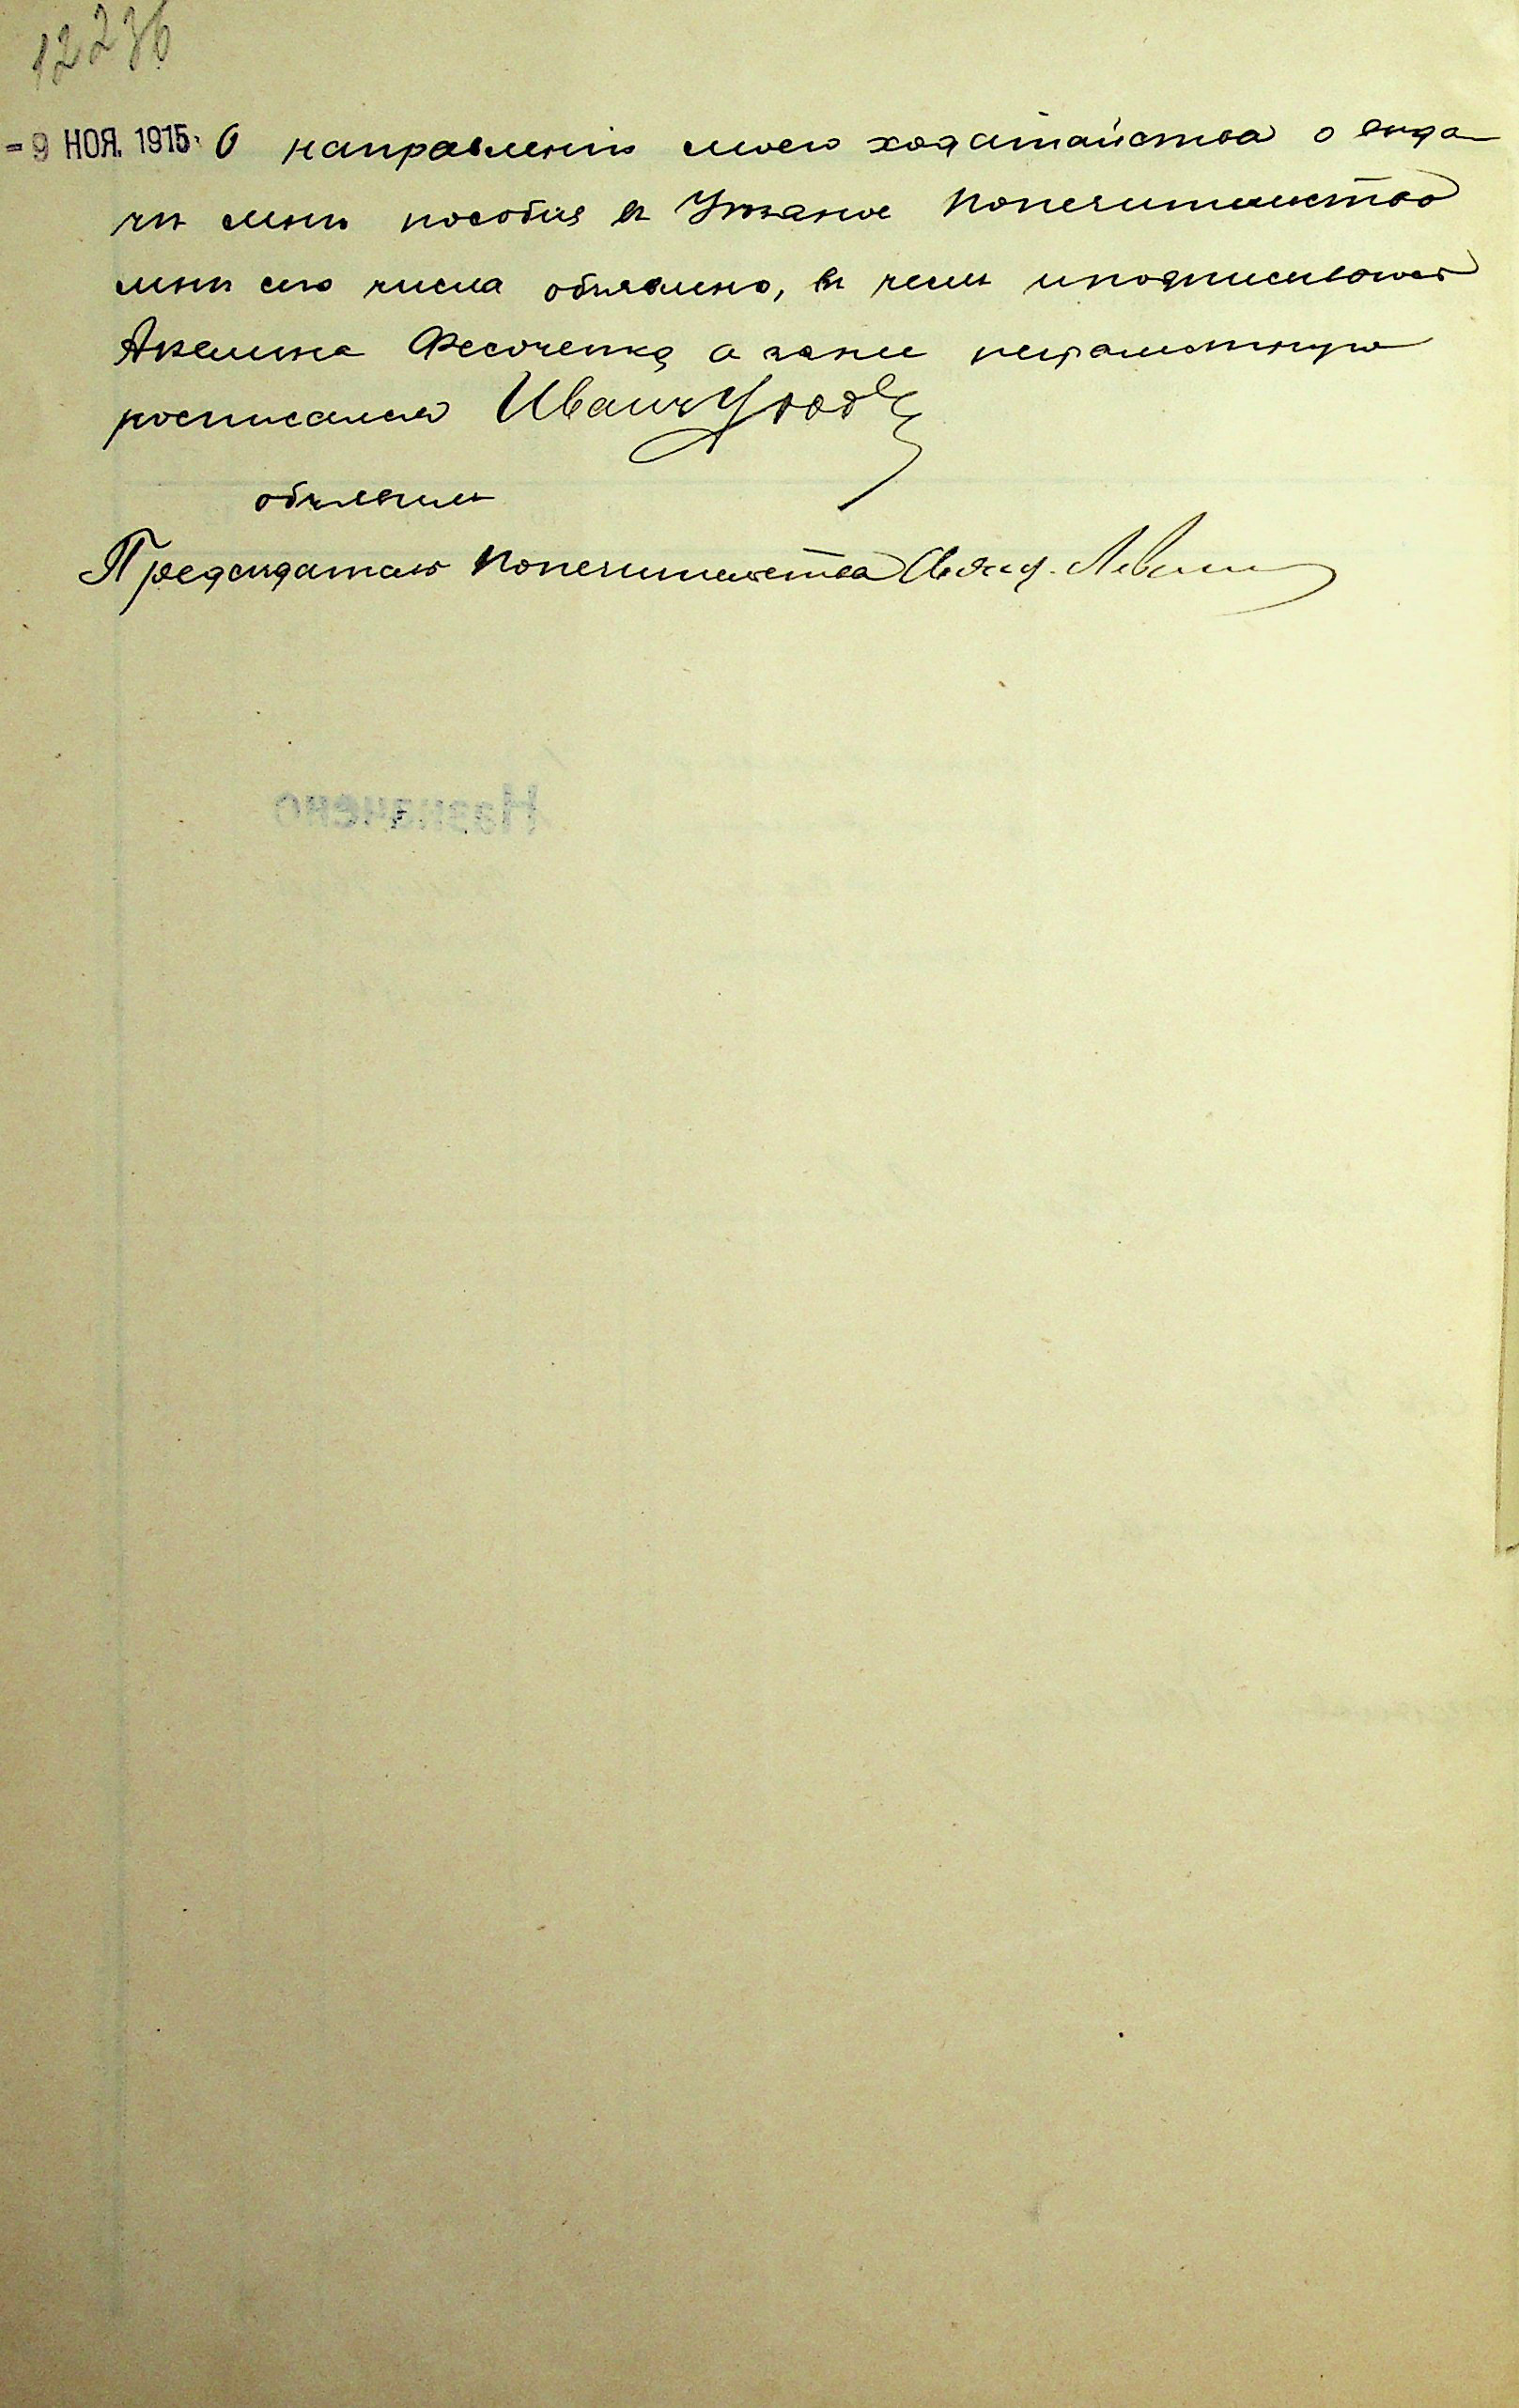 12236
= 9 НОЯ. 1915 О направленіи моего ходатайства о выда-
чѣ мнѣ пособія въ Уѣздное Попечительство
мнѣ сего числа объявлено, въ чемъ и подписываюсь
Акелина Фесоченка а за нее неграмотную
росписался Иванъ
объявилъ
Председатель Попечительства
Назначено